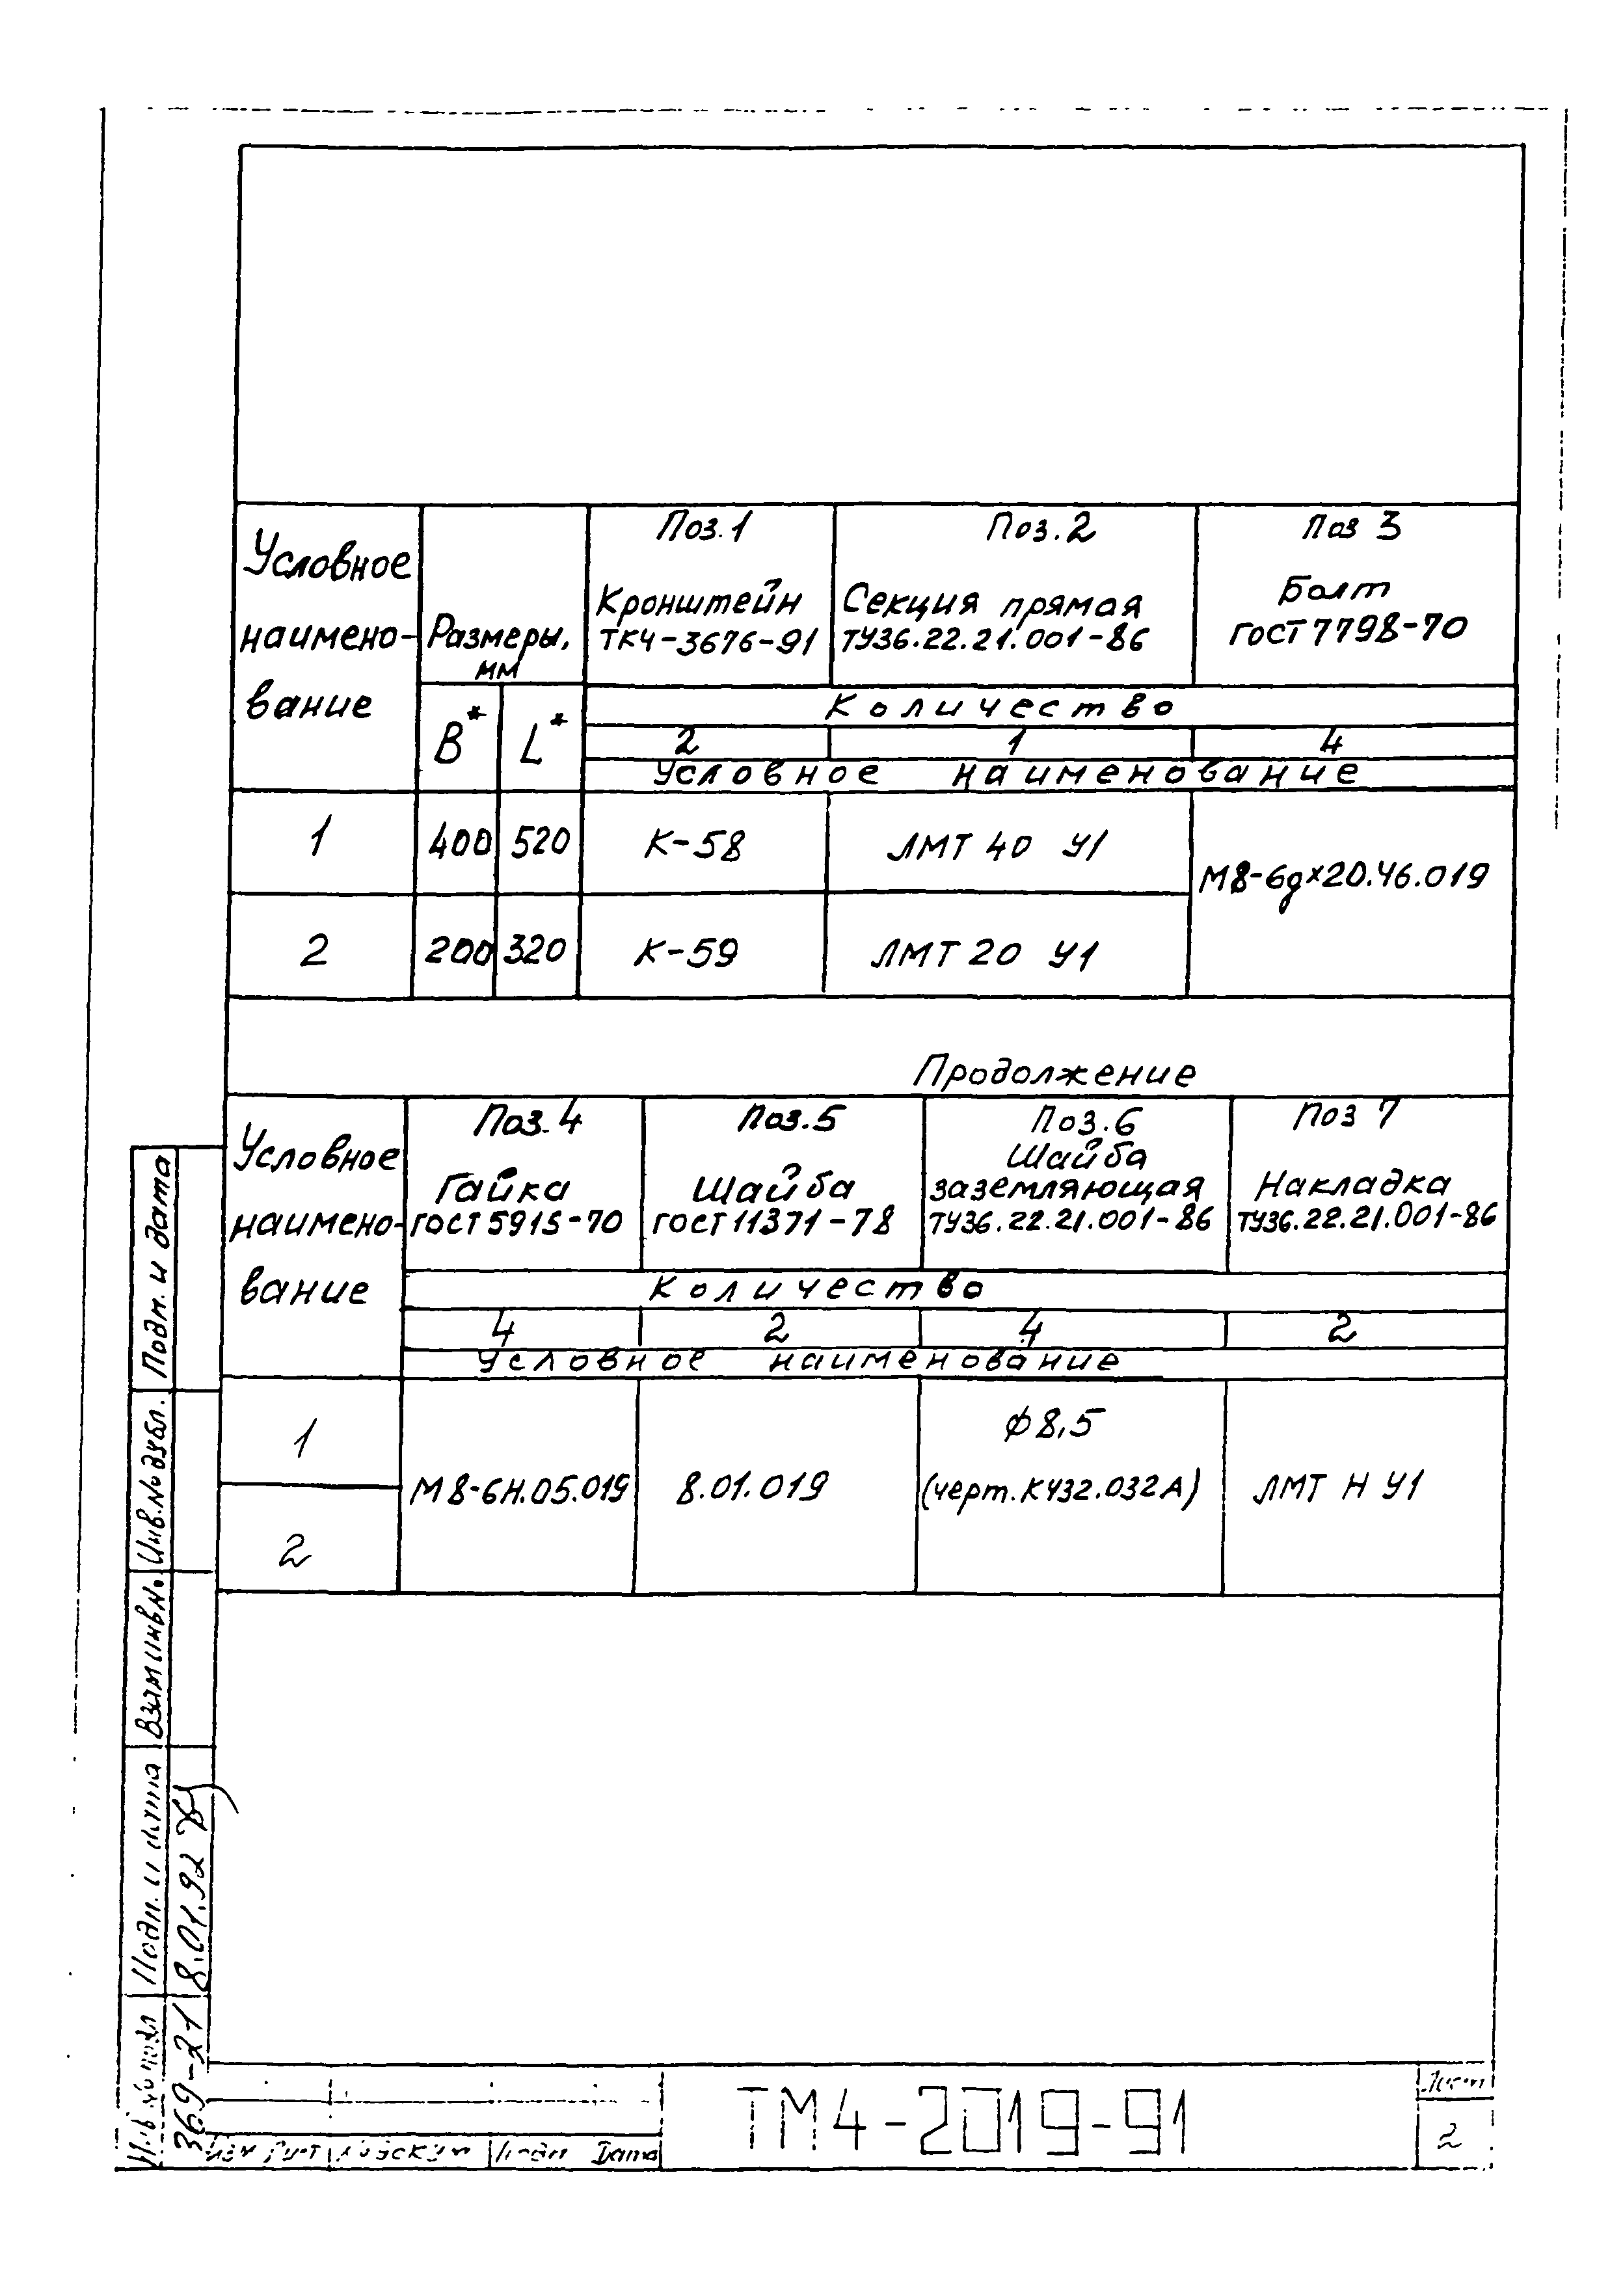 Условное
наимено-
вание
Размеры,
мм
B* L*
Поз.1
Кронштейн
ТК4-3676-91
Поз.2
Секция прямая
ТУ36.22.21.001-86
Поз 3
Болт
ГОСТ 7798-70
Количество
2 1 4
Условное наименование
1 400 520 К-58 ЛМТ 40 У1
М8-6gx20.46.019
2 200 320 К-59 ЛМТ 20 У1
Продолжение
Условное
наимено-
вание
Поз.4
Гайка
ГОСТ 5915-70
Поз.5
Шайба
ГОСТ 11371-78
Поз.6
Шайба
заземляющая
ТУ36.22.21.001-86
Поз 7
Накладка
ТУ36.22.21.001-86
Количество
4 2 4 2
Условное наименование
1
2
М8-6Н.05.019
8.01.019
ф8,5
(черт.К432.032А)
ЛМТ Н У1
Подп. и дата
Инв.№ дубл.
Взам инв.№
Подп. и дата
8.01.92
Инв № подл
369-21
Подп Дата
ТМ4-2019-91
Лист
2